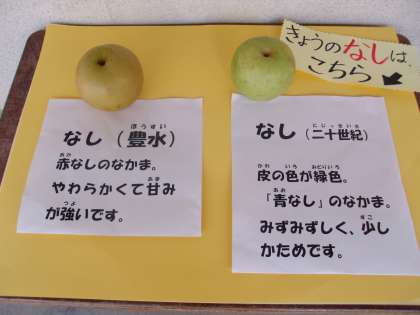 きょうのなしは、
こちら↙
なし（豊水）
赤なしのなかま。
やわらかくて甘み
が強いです。
なし（二十世紀）
皮の色が緑色。
「青なし」のなかま。
みずみずしく、少し
かためです。